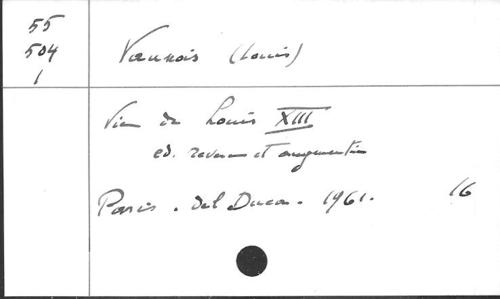 55
504
1
Vaunois (Louis)
Vie de Louis XIII
ed. revue et augmentée
Paris. del Duca. 1961. 16